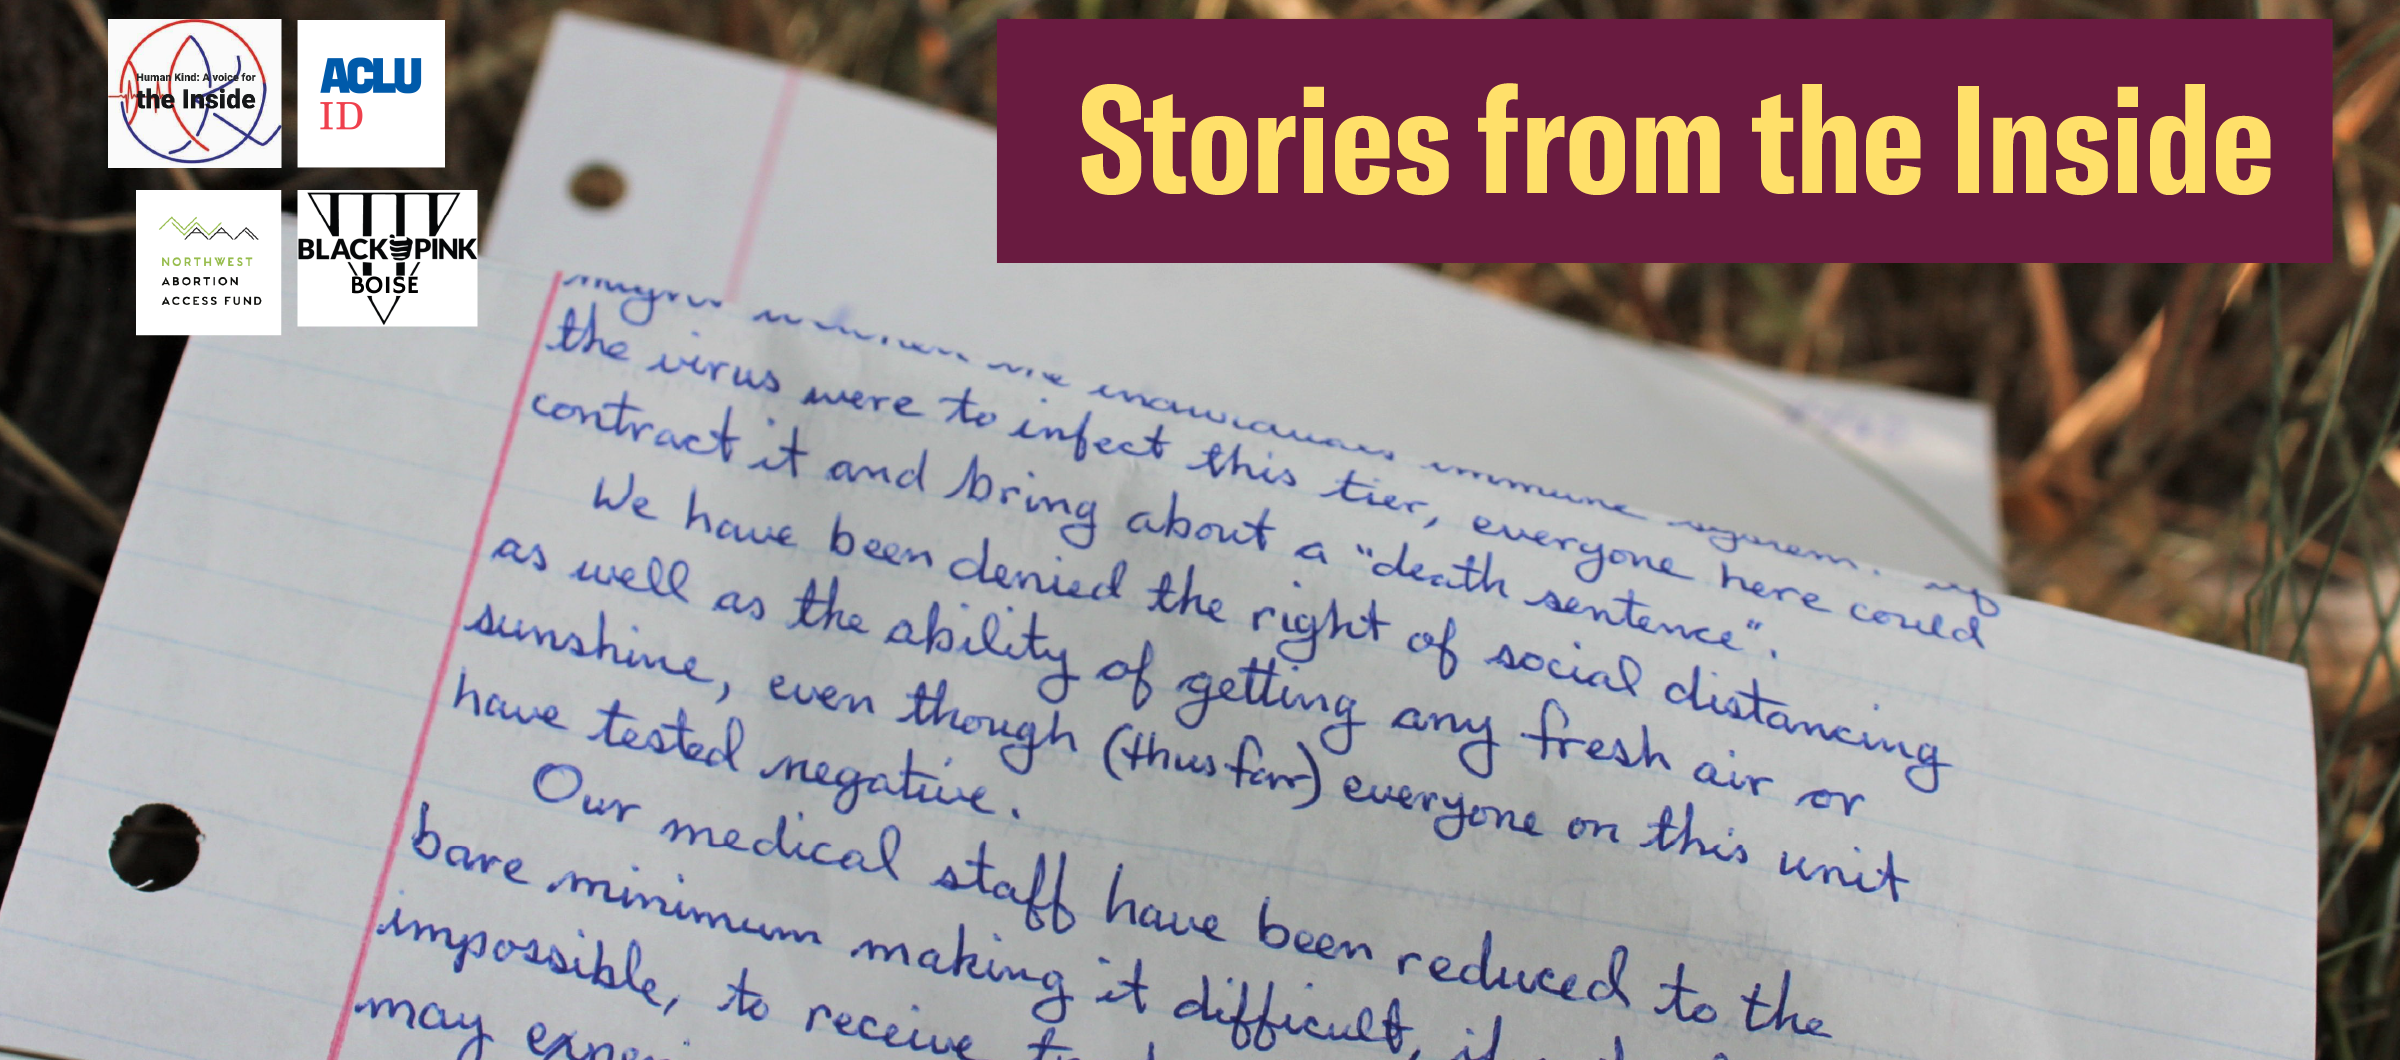 Human Kind: A voice for
the Inside
ACLU
ID
NORTHWEST
ABORTION
ACCESS FUND
BLACK PINK
BOISE
Stories from the Inside
immune system. If
the virus were to infect this tier, everyone here could
contract it and bring about a "death sentence".
We have been denied the right of social distancing
as well as the ability of getting any fresh air or
sunshine, even though (thus far) everyone on this unit
have tested negative.
Our medical staff have been reduced to the
bare minimum making it difficult, if
impossible, to receive
may